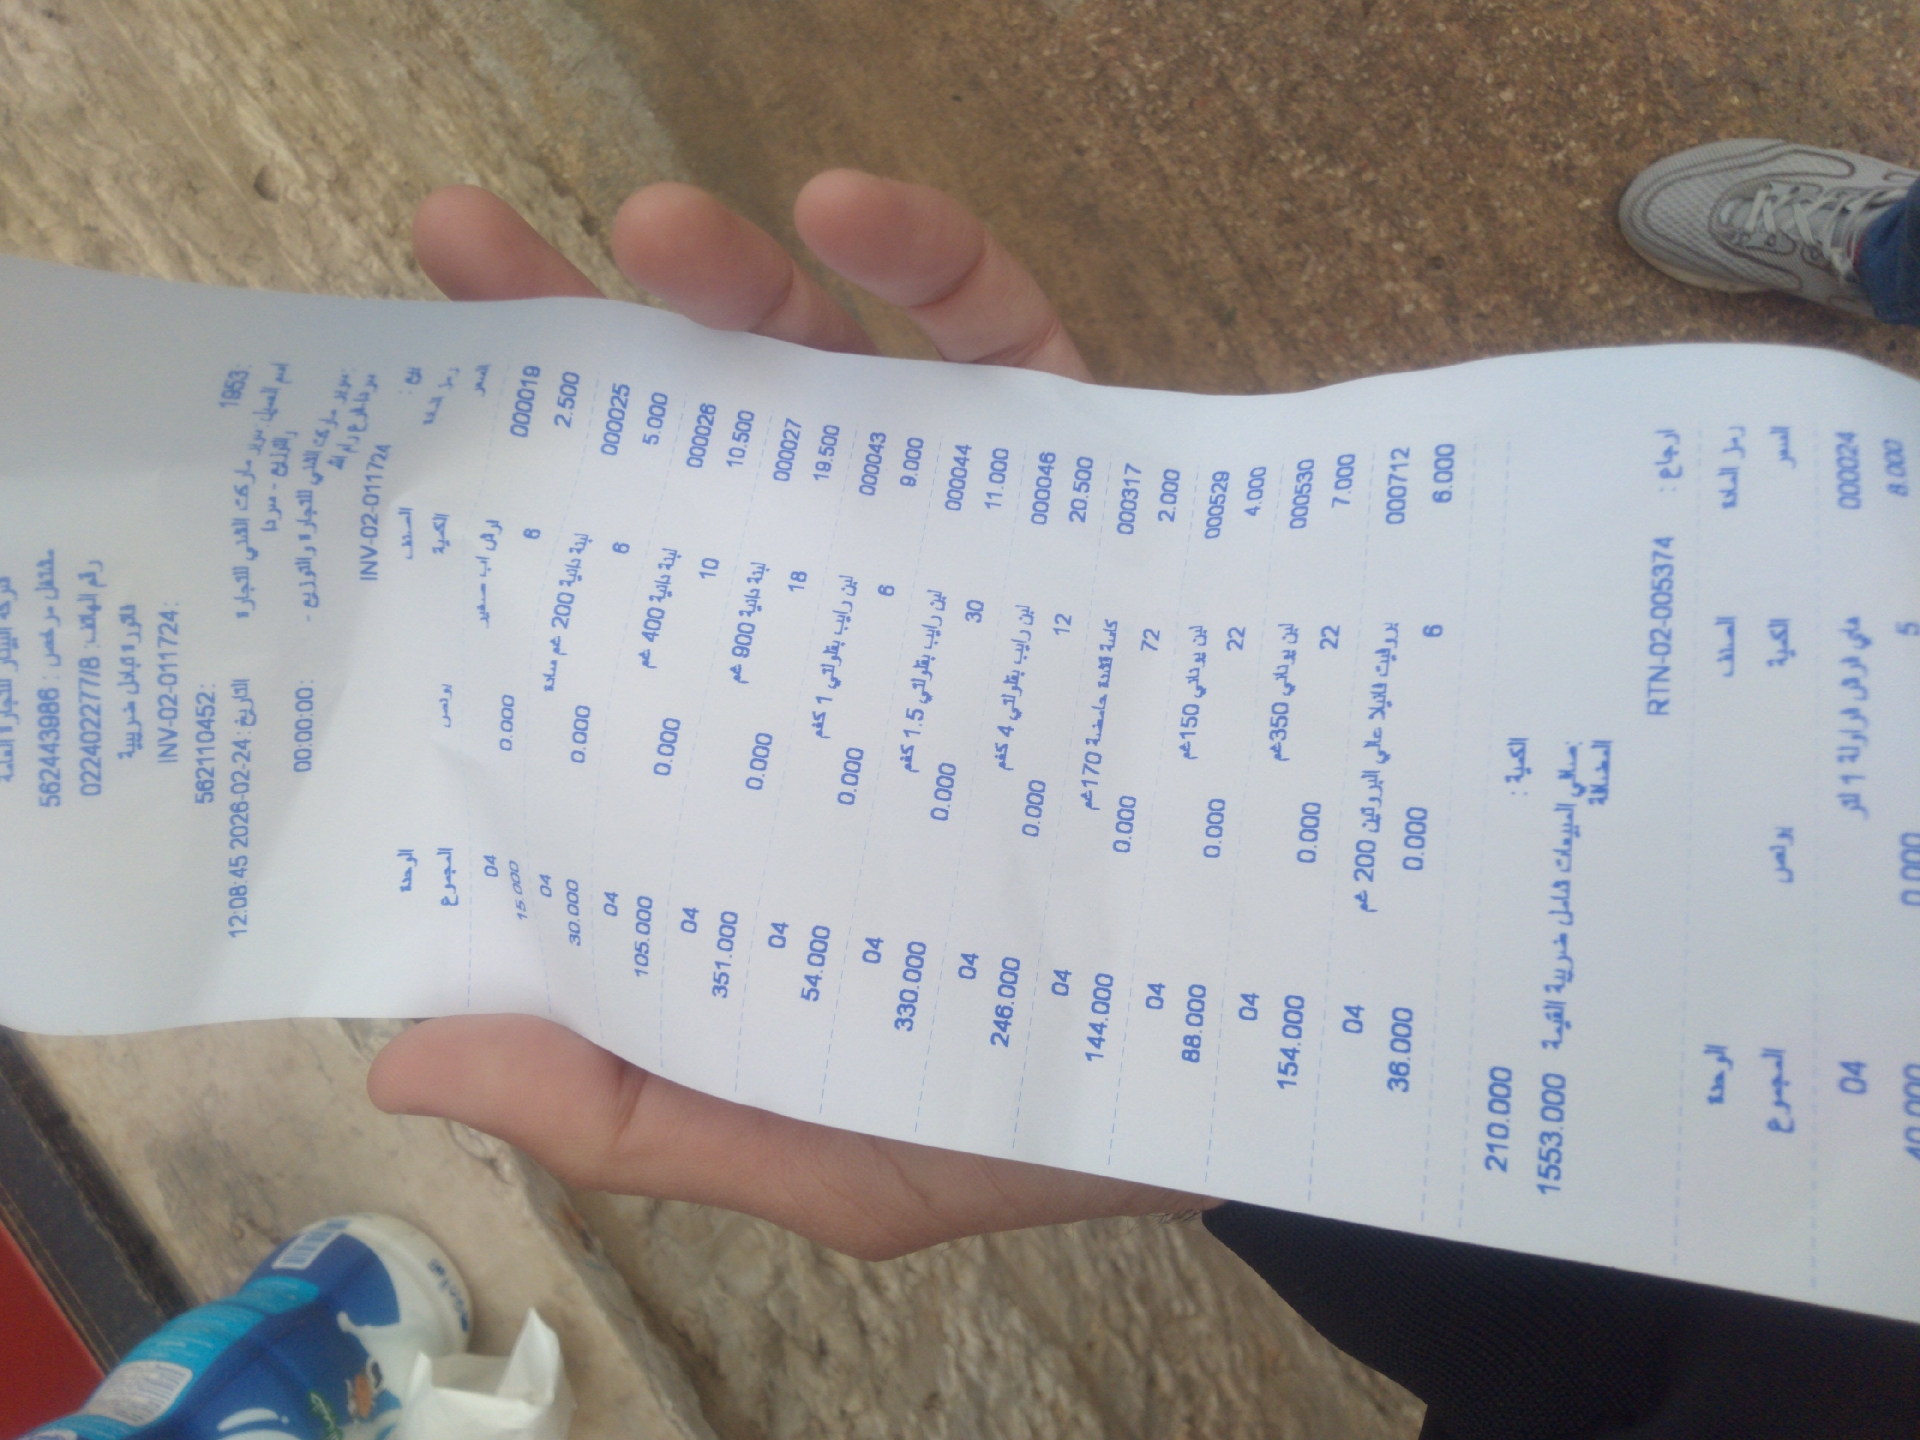 شركة البينار للتجارة العامة
مشتغل مرخص : 562443986
رقم الهاتف: 022402277/8
فاتورة شامل ضريبية
INV-02-011724:
562110452:
1953: التاريخ: 24-02-2026 12:08:45
اسم العميل: سوبر ماركت الغني للتجارة
والتوزيع - سردا
00:00:00:
سوبر ماركت الغني للتجارة والتوزيع -
سردا شارع رام الله
بيع : INV-02-011724
رمز المادة الصنف الوحدة
السعر الكمية بونص المجموع
000019 لرش اب صغير 04
2.500 6 0.000 15.000
000025 لبنة دانية 200 غم سادة 04
5.000 6 0.000 30.000
000026 لبنة دانية 400 غم 04
10.500 10 0.000 105.000
000027 لبنة دانية 900 غم 04
19.500 18 0.000 351.000
000043 لبن رايب بقلولتي 1 كغم 04
9.000 6 0.000 54.000
000044 لبن رايب بقلولتي 1.5 كغم 04
11.000 30 0.000 330.000
000046 لبن رايب بقلولتي 4 كغم 04
20.500 12 0.000 246.000
000317 كاسة قشدة حامضة 170غم 04
2.000 72 0.000 144.000
000529 لبن يوناني 150غم 04
4.000 22 0.000 88.000
000530 لبن يوناني 350غم 04
7.000 22 0.000 154.000
000712 بروفيت فانيلا عالي البروتين 200 غم 04
6.000 6 0.000 36.000
الكمية : 210.000
صافي المبيعات شامل ضريبة القيمة المضافة: 1553.000
ارجاع : RTN-02-005374
رمز المادة الصنف الوحدة
السعر الكمية بونص المجموع
000024 ملي فرش فراولة 1 لتر 04
8.000 5 0.000 40.000